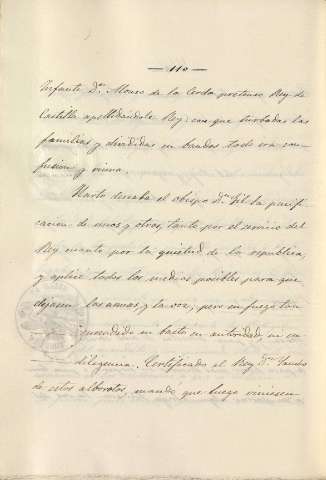 — 110 —
Infante Dn. Alonso de la Cerda pretenso Rey de
Castilla apellidándole Rey; con que turbadas las
familias y divididas en bandos todo era con-
fusion y ruina.
Harto deseaba el obispo Dn. Gil la pacifi-
cacion de unos y otros, tanto por el servicio del
Rey cuanto por la quietud de la república,
y aplicó todos los medios posibles para que
dejasen las armas, y la voz, pero en fuego tan
encendido no bastó su autoridad, ni su
diligencia. Certificado el Rey Dn. Sancho
de estos alborotos, mandó que luego viniesen